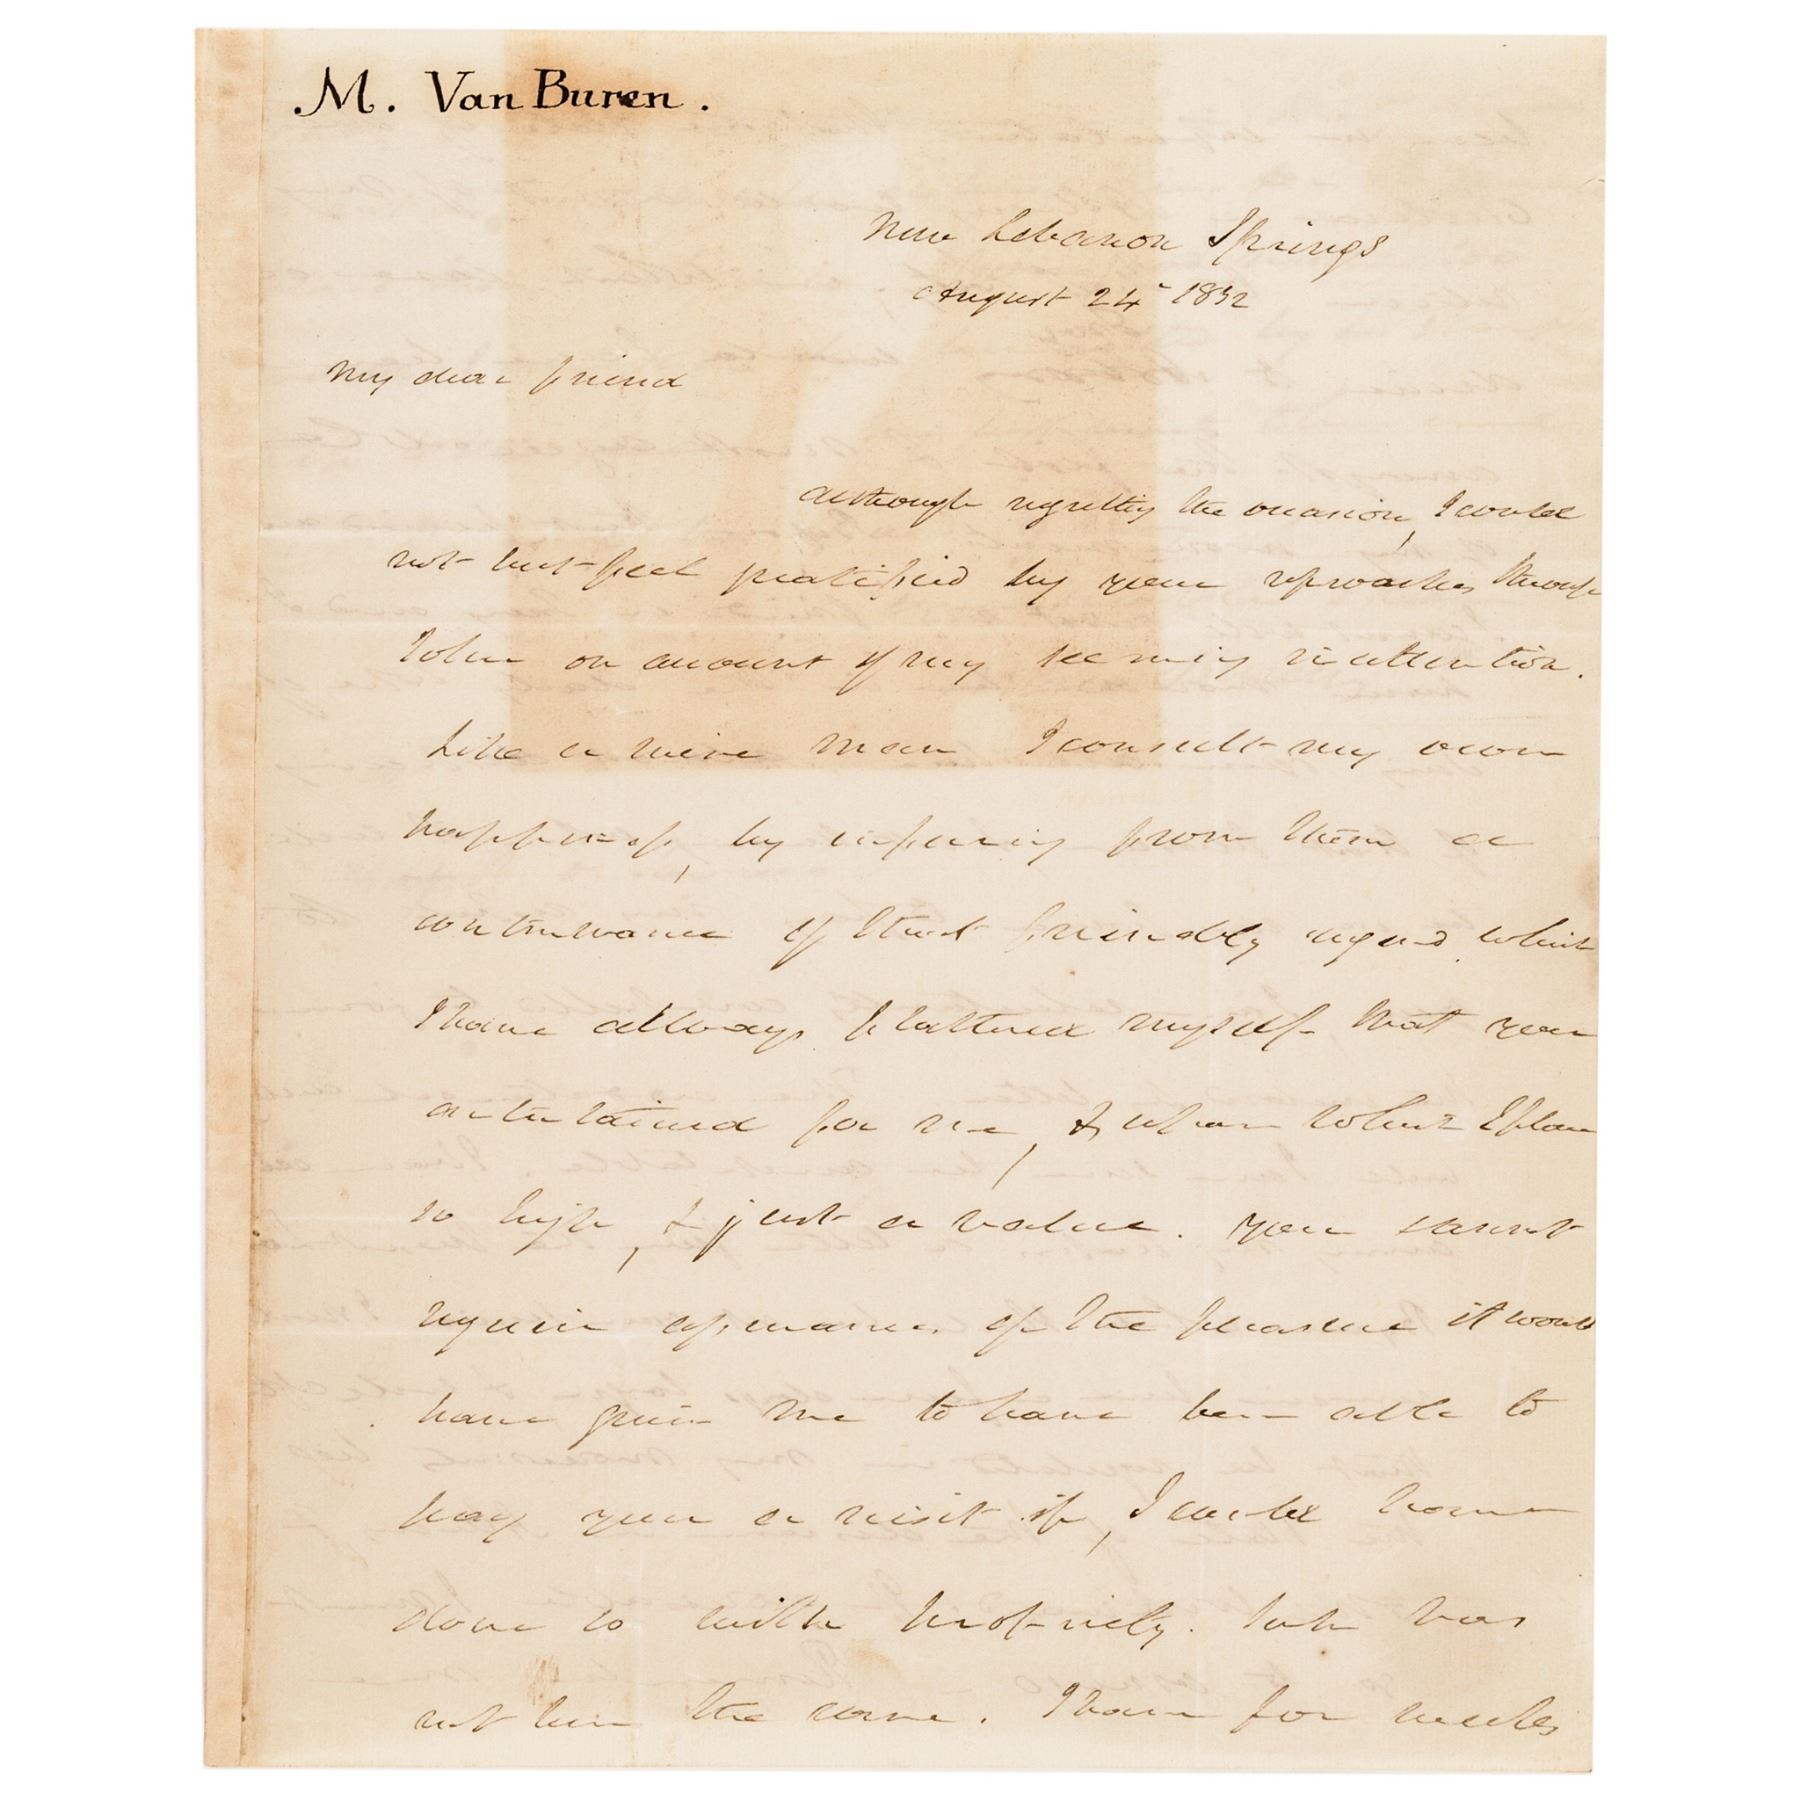 .M. Van Buren.
New Lebanon Springs
August 24 1832
My dear friend
Although regretting the occasion, I could
not but feel gratified by your reproaches through
John on account of my seeming inattention.
Like a wise man I consult my own
happiness, by inferring from them a
continuance of that friendly regard which
I have allways flattered myself that you
entertained for me, & upon which I place
so high, & just a value. You cannot
require assurances of the pleasure it would
have given me to have been able to
pay you a visit if, I could have
done so with propriety. Such has
not been the case. I have for weeks